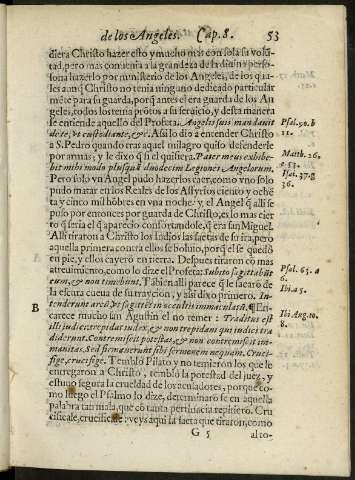 de los Angeles. Cap. 8. 53
diera Christo hazer esto y mucho mas con sola su volū
tad, pero mas conuenia a la grandeza de la diuina perso-
sona hazerlo por ministerio de los Angeles, de los qua-
les aunq̃ Christo no tenia ninguno dedicado particular
mēte para su guarda, porq̃ antes el era guarda de los An
geles, todos los tenia prōtos a su seruicio, y desta manera
se entiende aquello del Profeta. Angelis suis mandauit
de te, vt custodiant, &c. Assi lo dio a entender Christo
a S. Pedro quando tras aquel milagro quiso defenderle
por armas; y le dixo q̃ si el quisiera. Pater meus exhibe-
bit mihi modo plusquā duodecim Legiones Angelorum.
Pero solo vn Angel pudo hazerlos caer, como vno solo
pudo matar en los Reales de los Assyrios ciento y oché
ta y cinco mil hōbres en vna noche: y el Angel q̃ alli se
puso entonces por guarda de Christo, es lo mas cier
to q̃ seria el q̃ aparecio confortandole, q̃ era san Miguel.
Alli tiraron a Christo los Iudios las saetas de su ira, pero
aquella primera contra ellos se boluio, porq̃ el se quedō
en pie, y ellos cayero en tierra. Despues tiraron cō mas
atreuimiento, como lo dize el Profeta: Subito sagittabūt
eum, & non timebunt. Tābien alli parece q̃ le sacarō de
la escura cueua de su trayciō, y assi dixo primero. In-
tenderunt arcū
Psal. 90. b
11.
Matth. 26,
e 53.
Isai. 37. g
36.
Psal. 63. a
6.
Ibi a 5.
B
carece mucho san Agustin el no temer: Traditus est
illi judici: trepidat iudex, & non trepidant qui iudici tra
diderunt. Contremiscit potestas, & non contremiscit im-
manitas. Sed firmauerunt sibi sermonem nequam. Cruci-
fige, crucifige. Tembló Pilato y no temieron los que le
entregaron a Christo, tembló la potestad del juez, y
estuuo segura la crueldad de los acusadores, porque co-
mo luego el Psalmo lo dize, determinarō se en aquella
palabra tan mala, que cō tanta pertinacia repitierō. Cru
cificale, crucificale: veys aqui la saeta que tiraron, como
Ibi Aug. 10.
8.
G 5 al to-